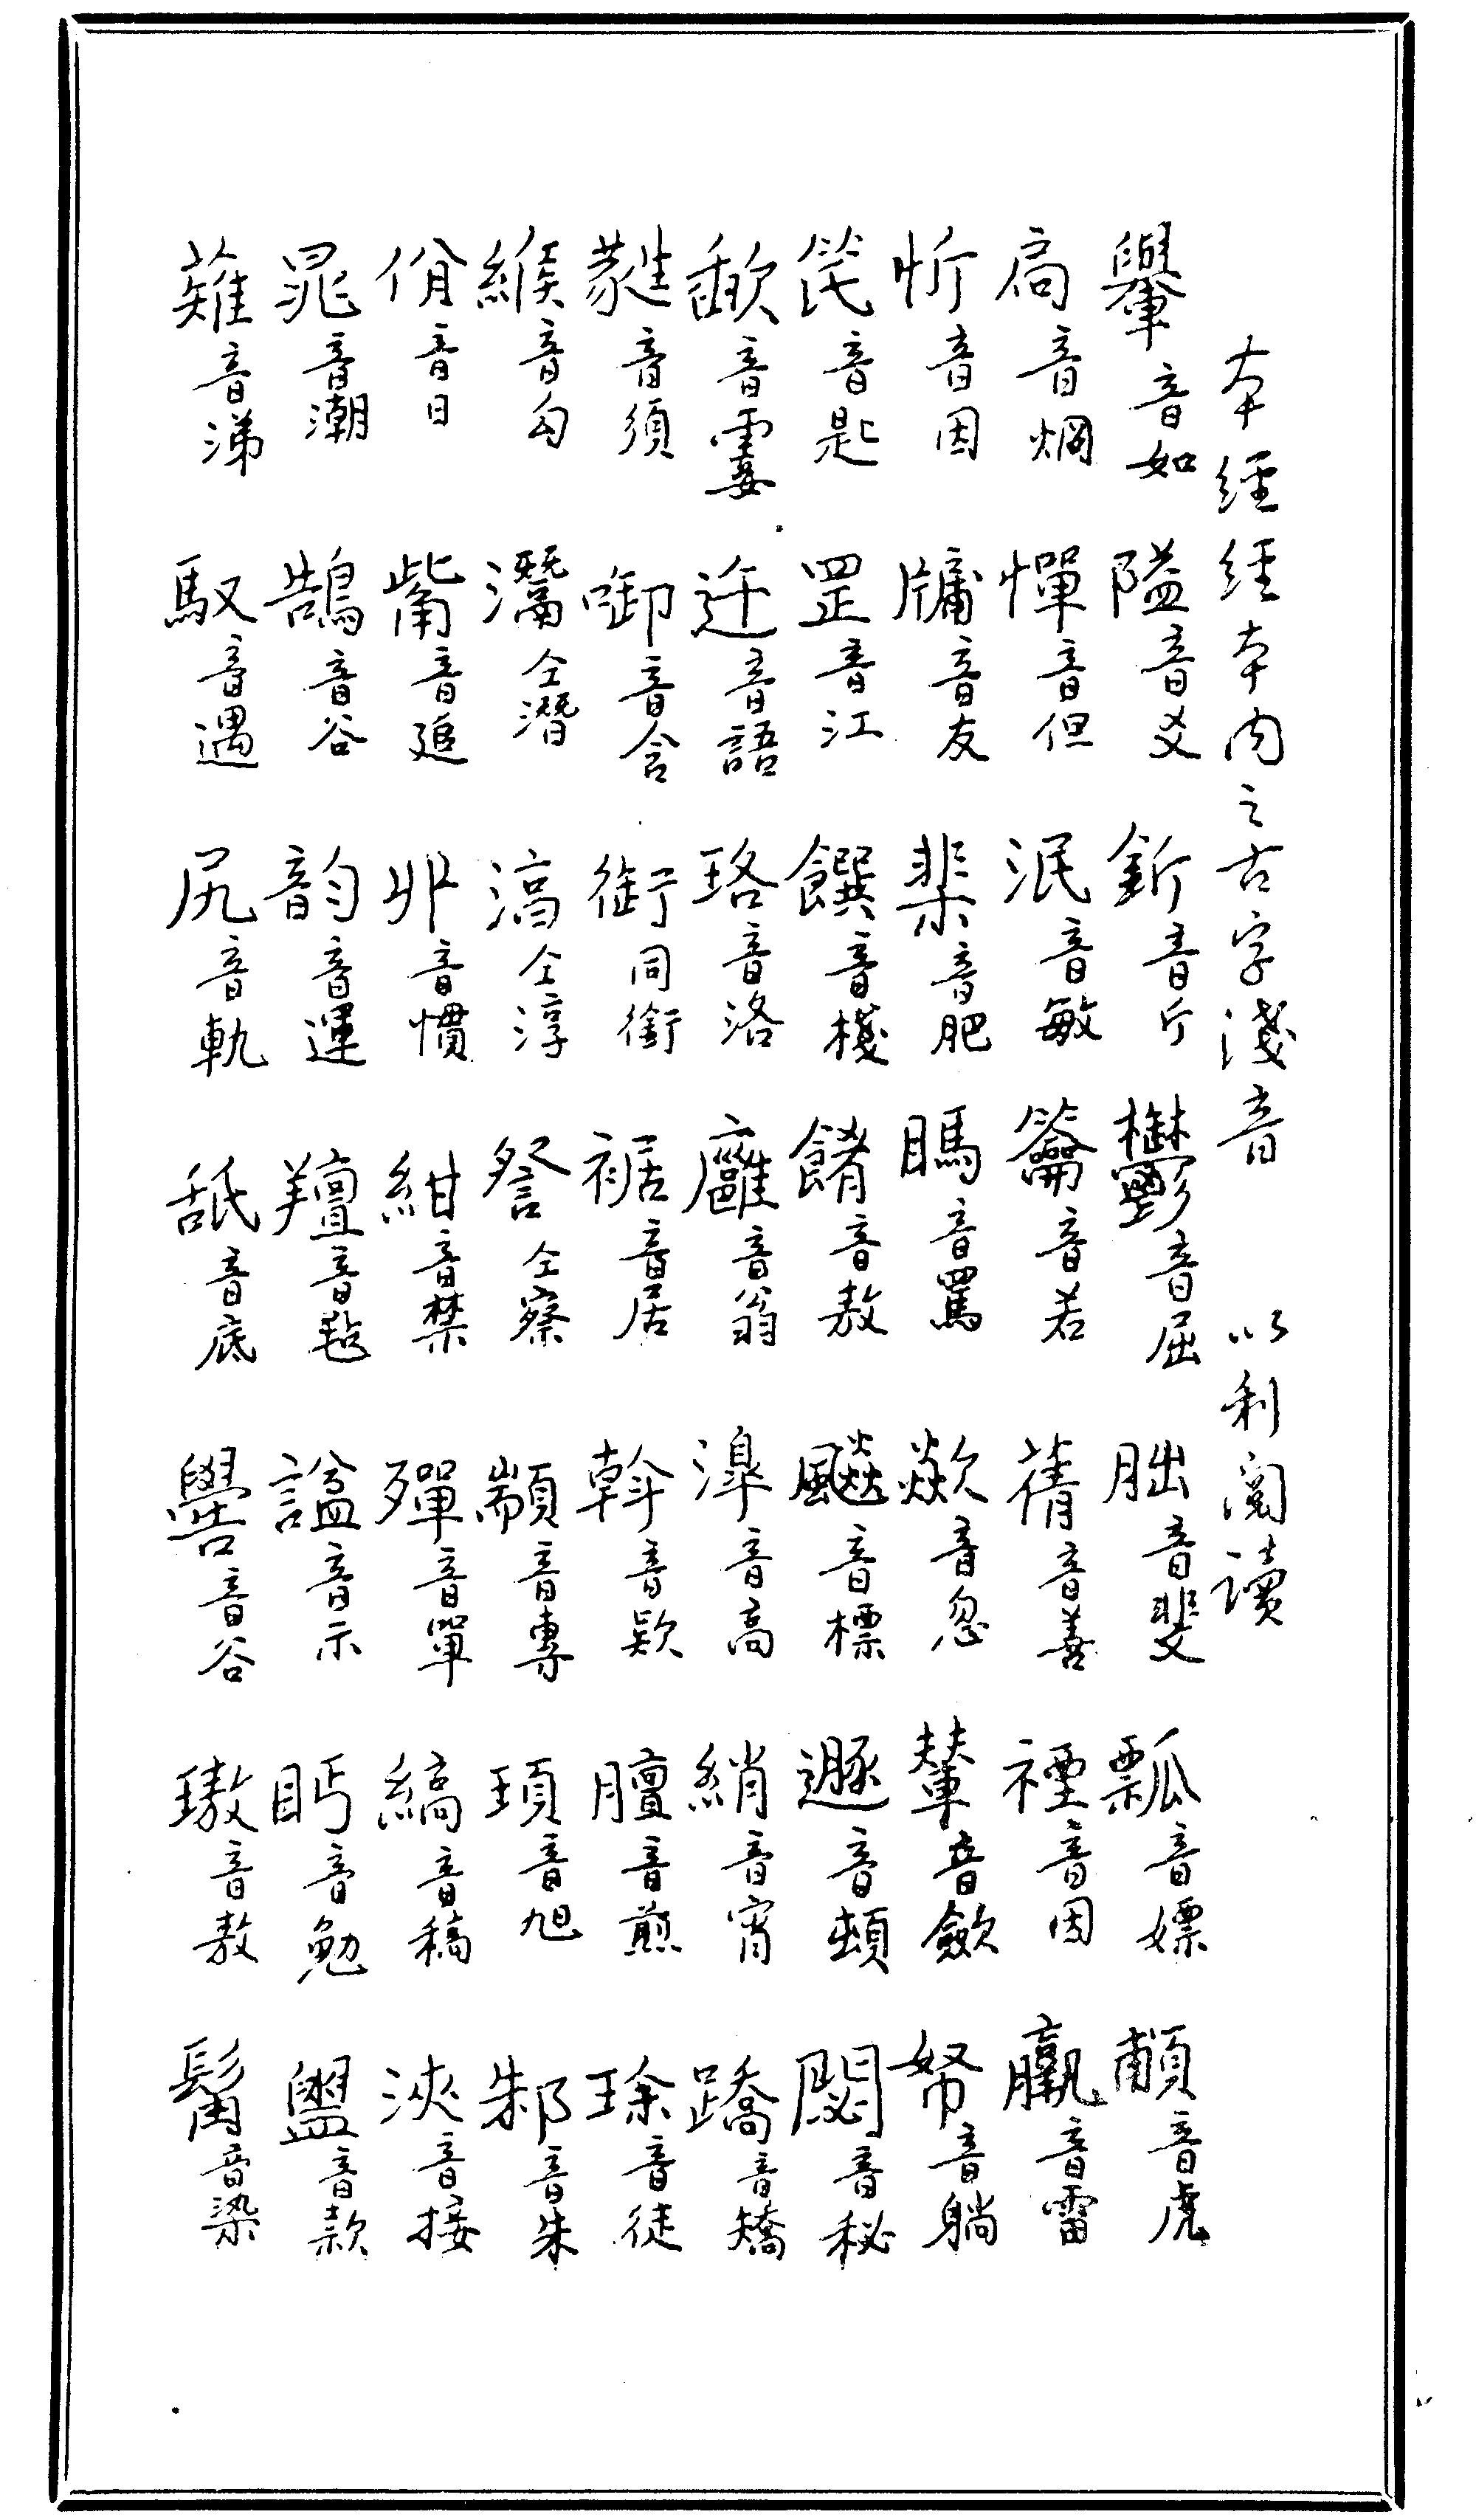 本經經本内之古字淺音 以利閱讀
轝音如 隘音爻 釿音斤 欝音屈 朏音斐 瓢音嫖 顝音虎
扄音烱 憚音但 泯音敏 籥音若 蒨音善 禋音因 羸音雷
忻音因 牗音友 棐音肥 瞗音罵 歘音忽 輦音歛 帑音躺
笓音匙 罡音江 饌音棧 餚音敖 飈音標 遯音頓 閟音秘
歃音霎 迕音語 珞音洛 廱音翁 滜音高 綃音宵 蹻音矯
蕤音須 啣音含 衘同銜 裾音居 斡音欵 膻音羶 玲音徒
緱音勾 灊仝潛 湻仝淳 詧仝察 顓音專 頊音旭 邾音朱
佾音日 觜音追 丱音慣 紺音禁 殫音單 縞音稿 浹音接
鼂音潮 鵠音谷 韵音運 羶音毡 謚音示 眄音勉 盥音款
薙音涕 馭音遇 尻音軌 舐音底 嚳音谷 璈音敖 髯音染